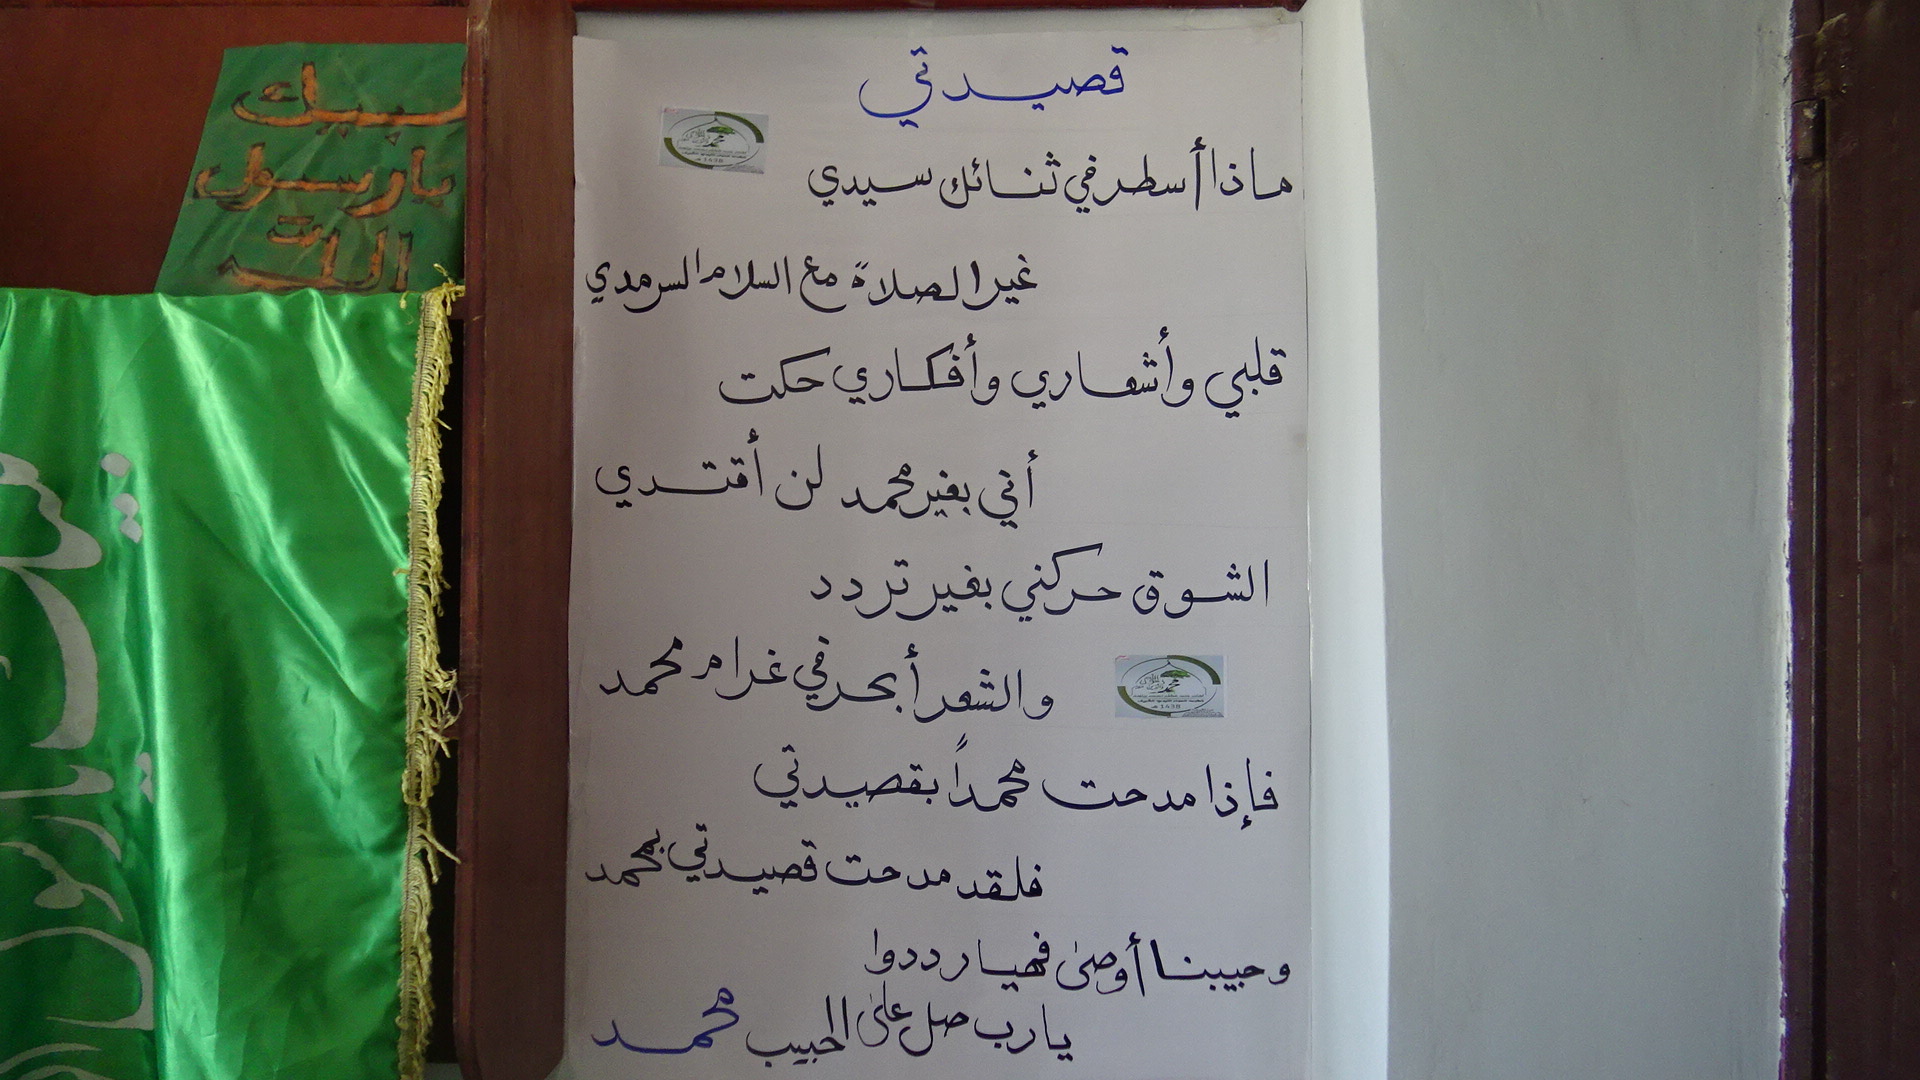 قصيدتي
ماذا أسطر في ثنائك سيدي
غير الصلاة مع السلام السرمدي
قلبي وأشعاري وأفكاري حكت
أني بغير محمد لن أقتدي
الشوق حركني بغير تردد
والشعر أبحر في غرام محمد
فإذا مدحت محمداً بقصيدتي
فلقد مدحت قصيدتي بمحمد
وحبيبنا أوصى فهيا رددوا
يارب صل على الحبيب محمد
لبيك
يارسول
الله